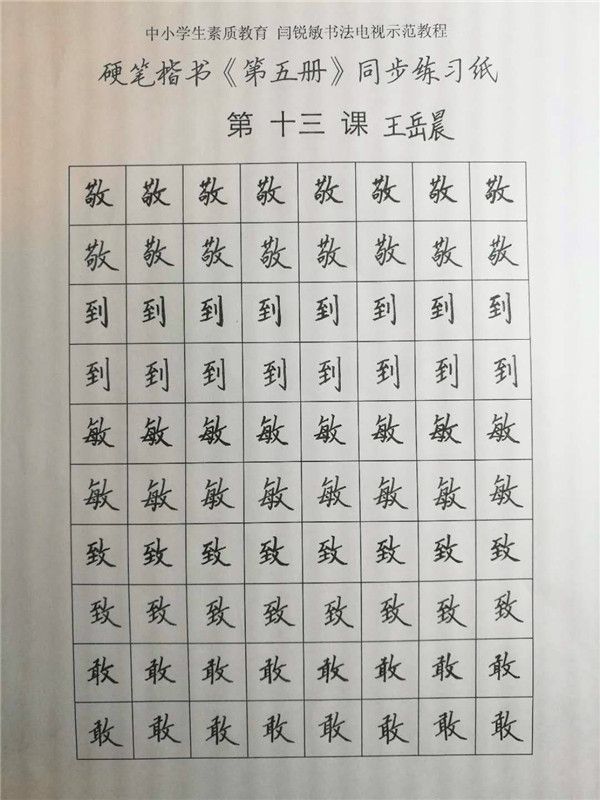 中小学生素质教育 闫锐敏书法电视示范教程
硬笔楷书《第五册》同步练习纸
第 十三 课 王岳晨
敬 敬 敬 敬 敬 敬 敬 敬
敬 敬 敬 敬 敬 敬 敬 敬
到 到 到 到 到 到 到 到
到 到 到 到 到 到 到 到
敏 敏 敏 敏 敏 敏 敏 敏
敏 敏 敏 敏 敏 敏 敏 敏
致 致 致 致 致 致 致 致
致 致 致 致 致 致 致 致
敢 敢 敢 敢 敢 敢 敢 敢
敢 敢 敢 敢 敢 敢 敢 敢